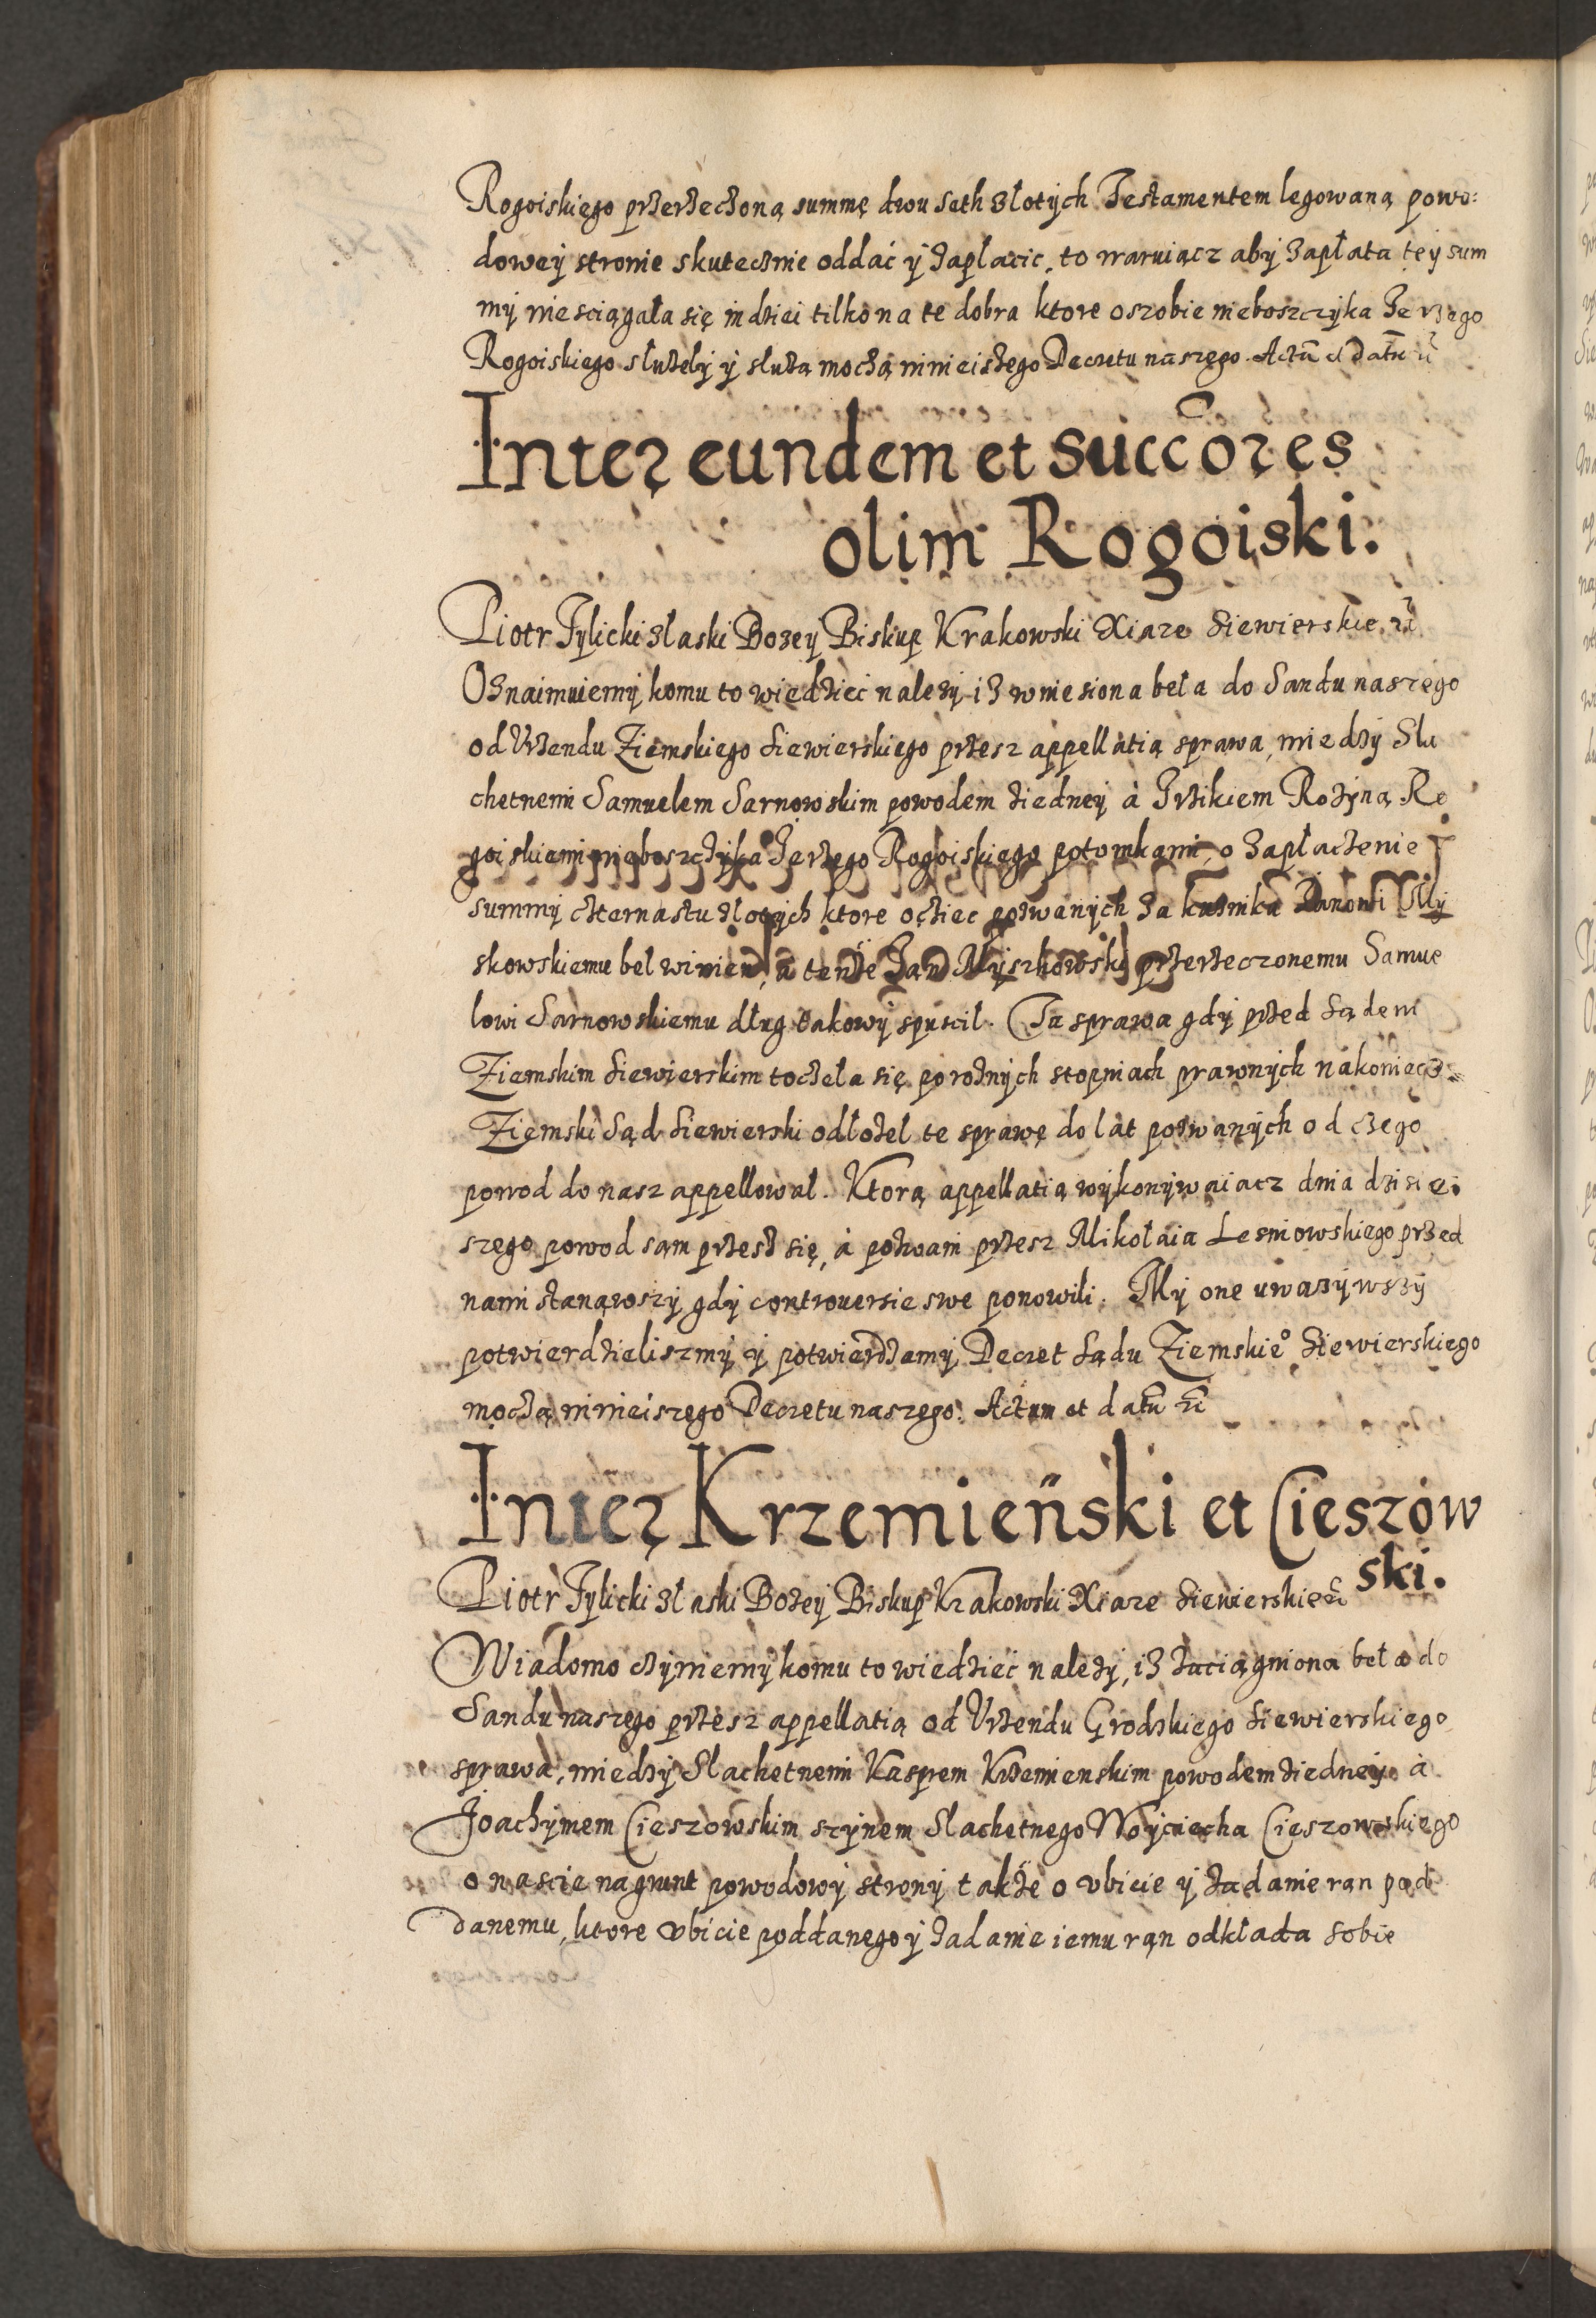 Rogoiskiego przerzeczoną summę dwu seth złotych Testamentem legowaną powo:
dowey stronie skutecznie oddać y zapłacic, to waruiącz aby zapłata tey sum
my niesciągała się indziei tilko na te dobra ktore oszobie nieboszczyka Jerzego
Rogoiskiego służely y służą moczą ninieiszego Decretu naszego. Actū et datū
Inter eundem et Succores
olim Rogoiski.
Piotr Tylicki z łaski Bozey Biskup Krakowski Xiaze Siewierskie
Oznaimuiemy komu to wiedziec nalezy iz wniesiona beła do Sandu naszego
od Vrzendu Ziemskiego Siewierskiego przesz appellatią sprawa, miedzy Sla
chetnemi Samuelem Sarnowskim powodem ziedney à Irzikiem Rozyną Ro
goiskiemi nieboszczyka Jerzego Rogoiskiego potomkami, o zapłaczenie
summy czternastu złotych ktore oćziec pozwanych za kuznika Janowi My
skowskiemu bel winien, à tenże Jan Myszkowski przerzeczonemu Samue
lowi Sarnowskiemu dług takowy spuscil. Ta sprawa gdy przed Sądem
Ziemskim Siewierskim toczela się porożnych stopniach prawnych nakoniecz
Ziemski Sąd Siewierski odłożel te sprawę do lat pozwanych od czego
powod do nasz appellowal. Ktorą appellatią wykonywaiacz dnia dzisiei
szego powod sąm przesz się, à pozwani przesz Mikołaia Lesniowskiego przed
nami stanąwszy gdy controuersie swe ponowili. My one uwazywszy
potwierdzieliszmy y potwierdzamy Decret Sądu Ziemskie° Siewierskiego
moczą ninieiszego Decretu naszego. Actum et datū
Inter Krzemieński et Cieszow
ski.
Piotr Tylicki z łaski Bożey Biskup Krakowski Xiaze Siewierskie
Wiadomo czyniemy komu to wiedziec należy, iz zaciągniona beła do
Sandu naszego przesz appellatią od Vrzendu Grodzkiego Siewierskiego
sprawa, miedzy Slachetnemi Kasprem Krzemienskim powodem ziedney à
Joachymem Cieszowskim szynem Slachetnego Woyciecha Cieszowskiego
o nascie nagrunt powodowy strony także o vbicie y zadanie ran pod
danemu, ktore vbicie poddanego y zadanie iemu rąn odkłada sobie